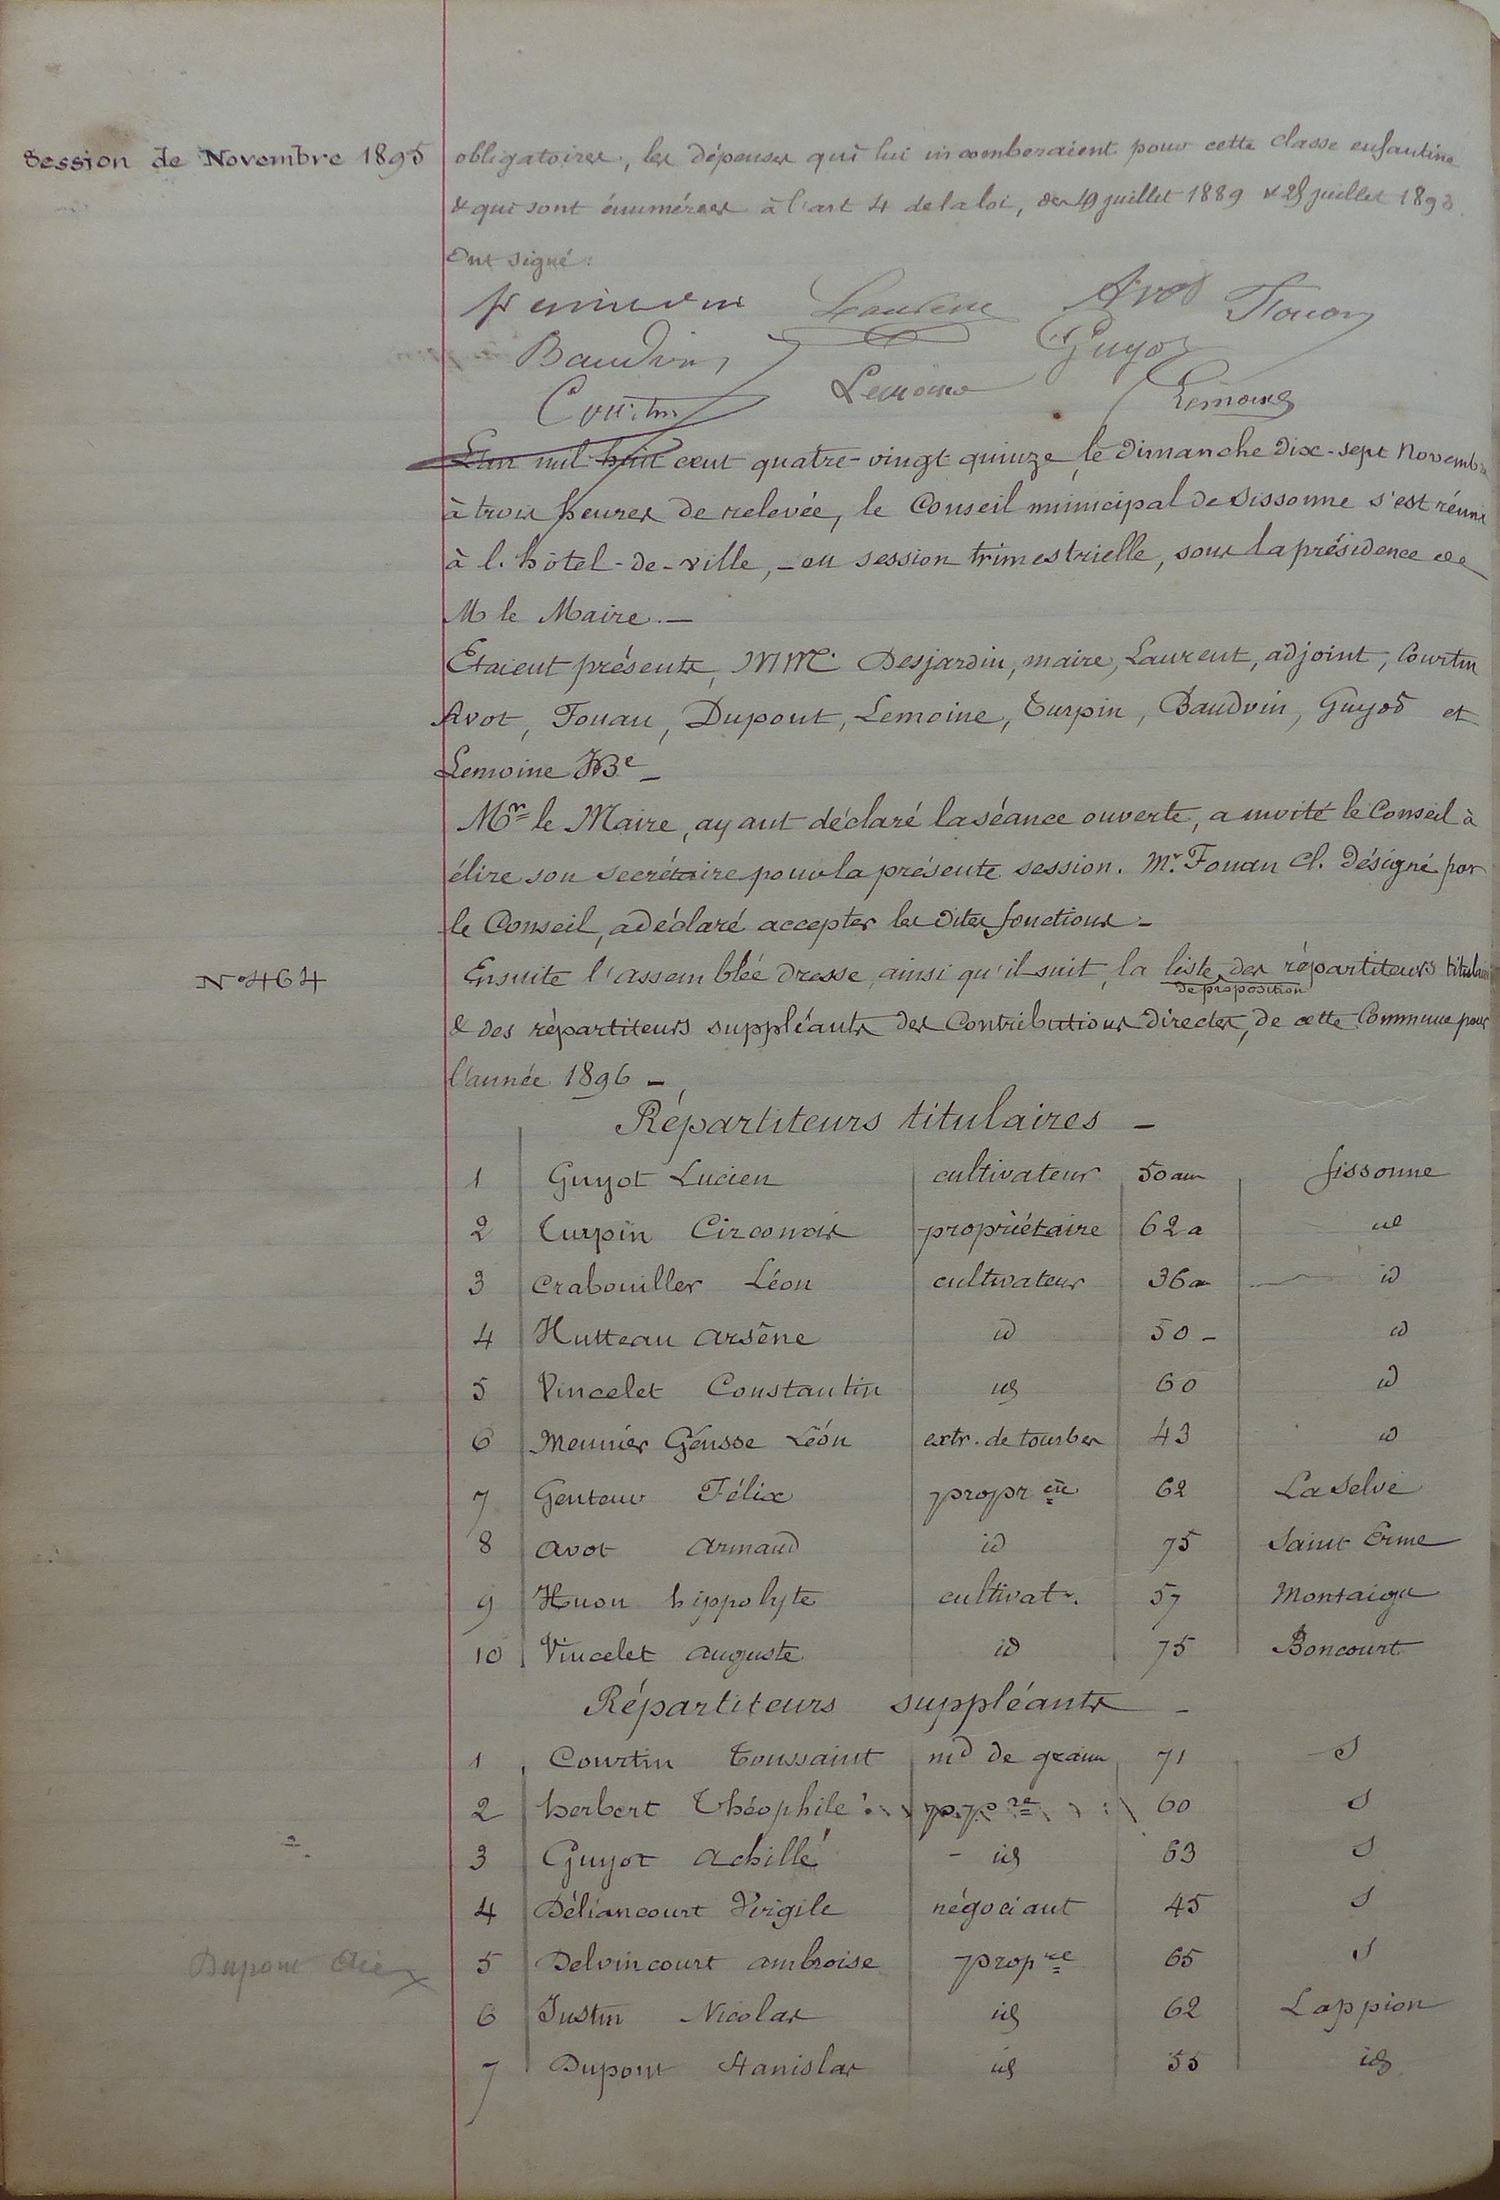 Session de Novembre 1895
obligatoires, les dépenses qui lui incomberaient pour cette classe enfantine
& qui sont énumérées à l'art 4 de la loi, des 19 juillet 1889 & 25 juillet 1893.
Ont signé :
Laurent Avot Fouan
Baudvin Guyot
Courtin Lemoine Lemoine
L'an mil huit cent quatre-vingt quinze, le dimanche dix-sept Novembre
à trois heures de relevée, le Conseil municipal de Sissonne s'est réuni
à l'hôtel-de-ville, en session trimestrielle, sous la présidence de
M le Maire. —
Etaient présents, MM. Desjardin, maire, Laurent, adjoint, Courtin
Avot, Fouan, Dupont, Lemoine, Turpin, Baudvin, Guyot et
Lemoine JBe —
Mr le Maire, ayant déclaré la séance ouverte, a invité le Conseil à
élire son secrétaire pour la présente session. Mr. Fouan Cl. désigné par
le Conseil, a déclaré accepter les dites fonctions —
N° 464
Ensuite l'assemblée dresse, ainsi qu'il suit, la liste des répartiteurs titulaires
de proposition
& des répartiteurs suppléants des Contributions directes, de cette Commune pour
l'année 1896 —
Répartiteurs titulaires —
1 Guyot Lucien cultivateur 50 ans Sissonne
2 Turpin Circoncis propriétaire 62 a id
3 Crabouiller Léon cultivateur 36 a id
4 Hutteau Arsène id 50 - id
5 Vincelet Constantin id 60 id
6 Meunier Géusse Léon extr. de tourbes 43 id
7 Genteur Félix propr re 62 La Selve
8 Avot Armand id 75 Saint Erme
9 Huon hippolyte cultivatr. 57 Montaigu
10 Vincelet Auguste id 75 Boncourt
Répartiteurs suppléants —
1 Courtin Toussaint md de grains 71 S
2 herbert Théophile p.p re 60 S
3 Guyot Achille - id 63 S
4 Déliancourt Virgile négociant 45 S
5 Delvincourt Ambroise propre 65 S
Dupont
6 Justin Nicolas id 62 Lappion
7 Dupont Stanislas id 55 id